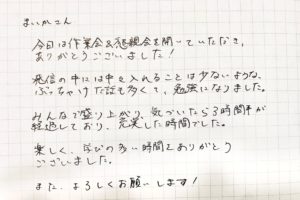 まいかさん
今日は作業会&懇親会を開いていただき、
ありがとうございました!
発信の中には中々入れることは少ないような、
ぶっちゃけた話も多くて、勉強になりました。
みんなで盛り上がり、気づいたら3時間半が
経過しており、充実した時間でした。
楽しく、学びの多い時間をありがとう
ございました。
また、よろしくお願いします!